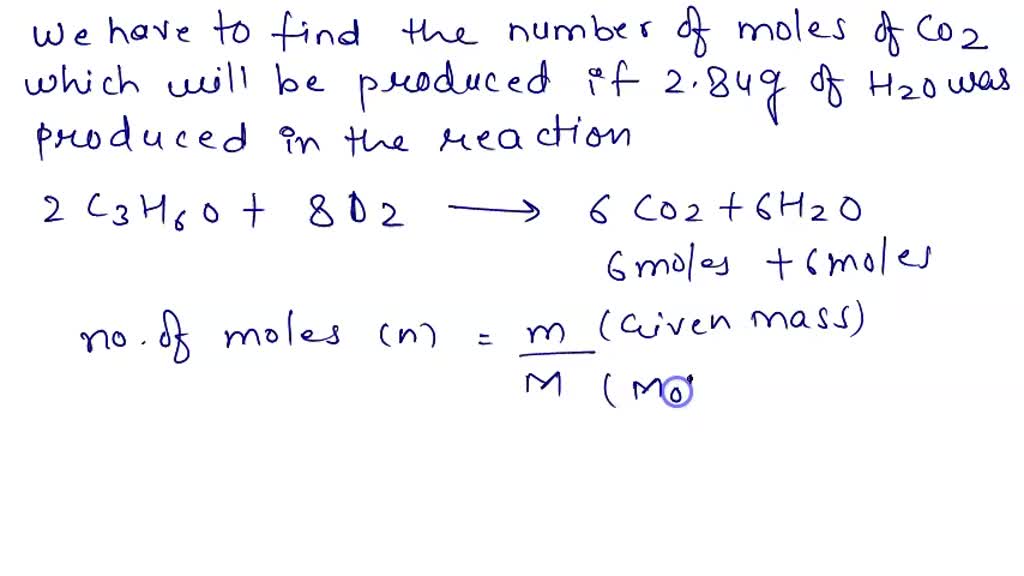 we have to find the number of moles of CO2
which will be produced if 2.84g of H2O was
produced in the reaction
2 C3H6O + 8O2 → 6 CO2 + 6H2O
6 moles + 6 moles
no. of moles (n) = m (Given mass)
M (Mo